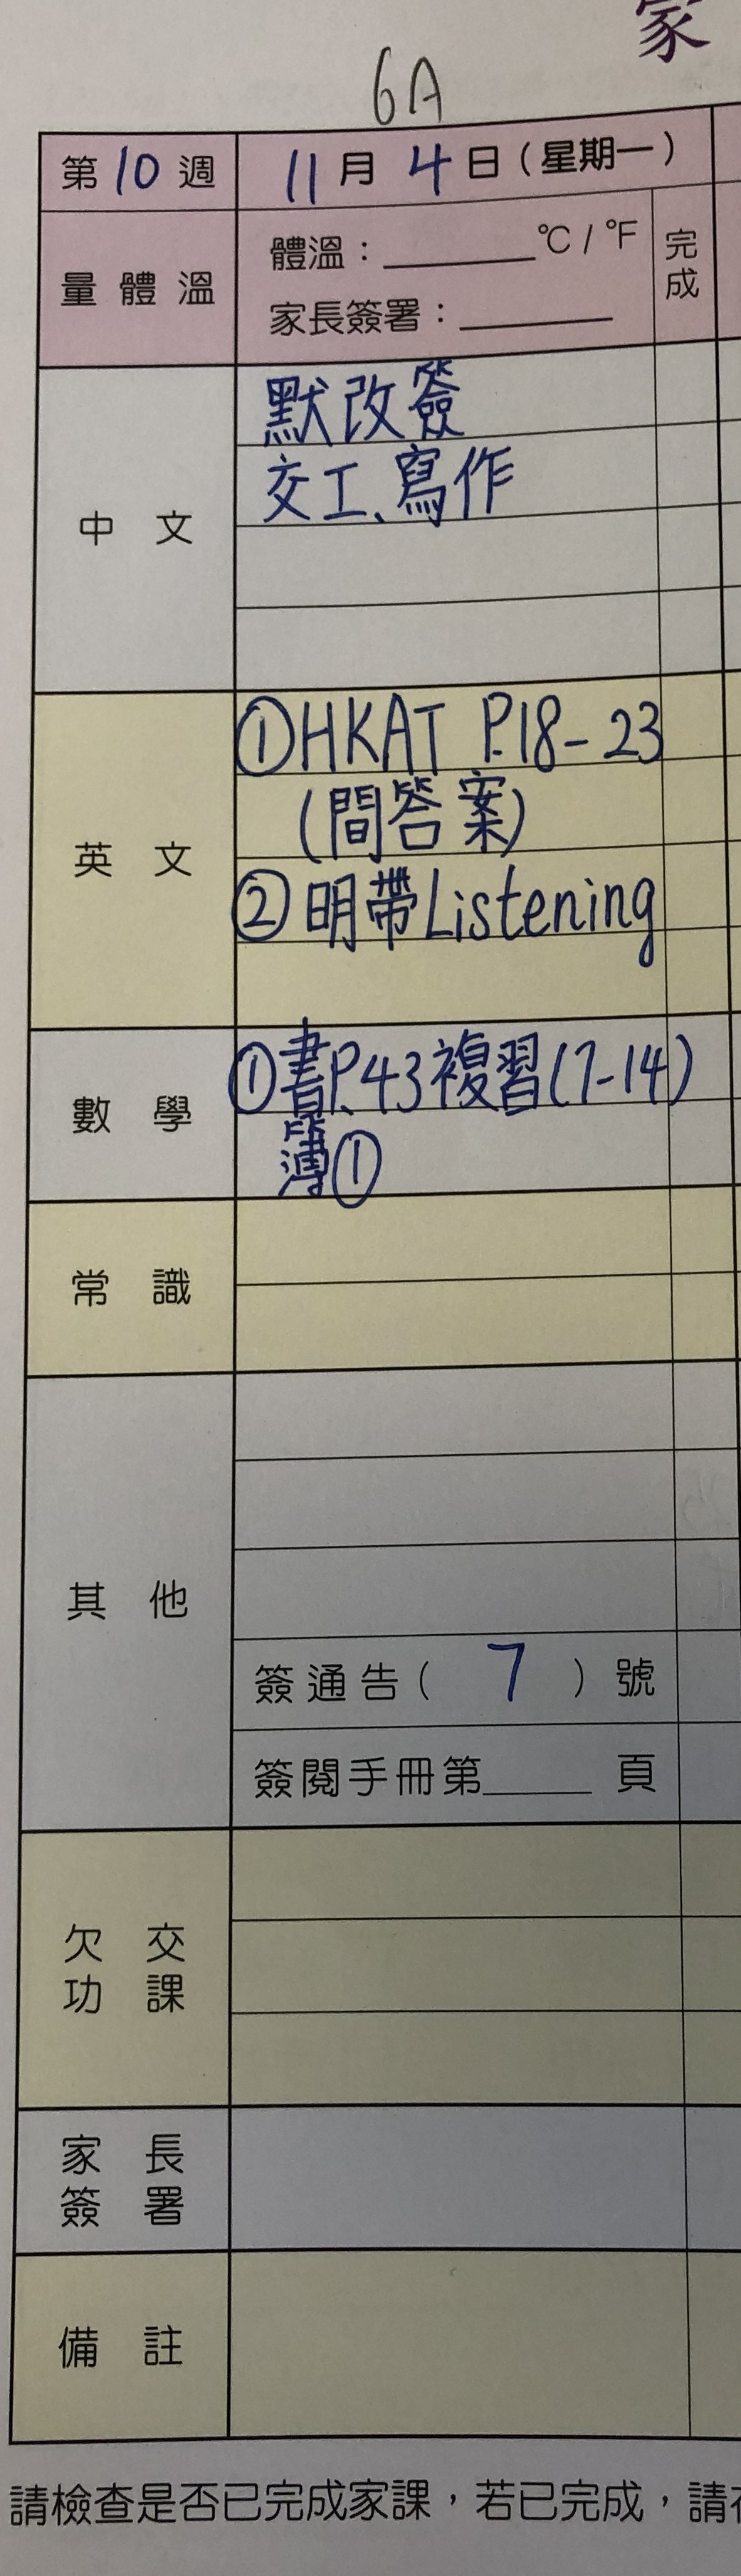 家
6A
第10週 11月4日(星期一)
量體溫 體溫：______℃/℉ 完成
家長簽署：______
中文 默改簽
交工、寫作
英文 ①HKAT P.18-23
(間答案)
②明帶Listening
數學 ①書P.43複習(7-14)
簿①
常識
其他
簽通告( 7 )號
簽閱手冊第______頁
欠交
功課
家長
簽署
備註
請檢查是否已完成家課，若已完成，請